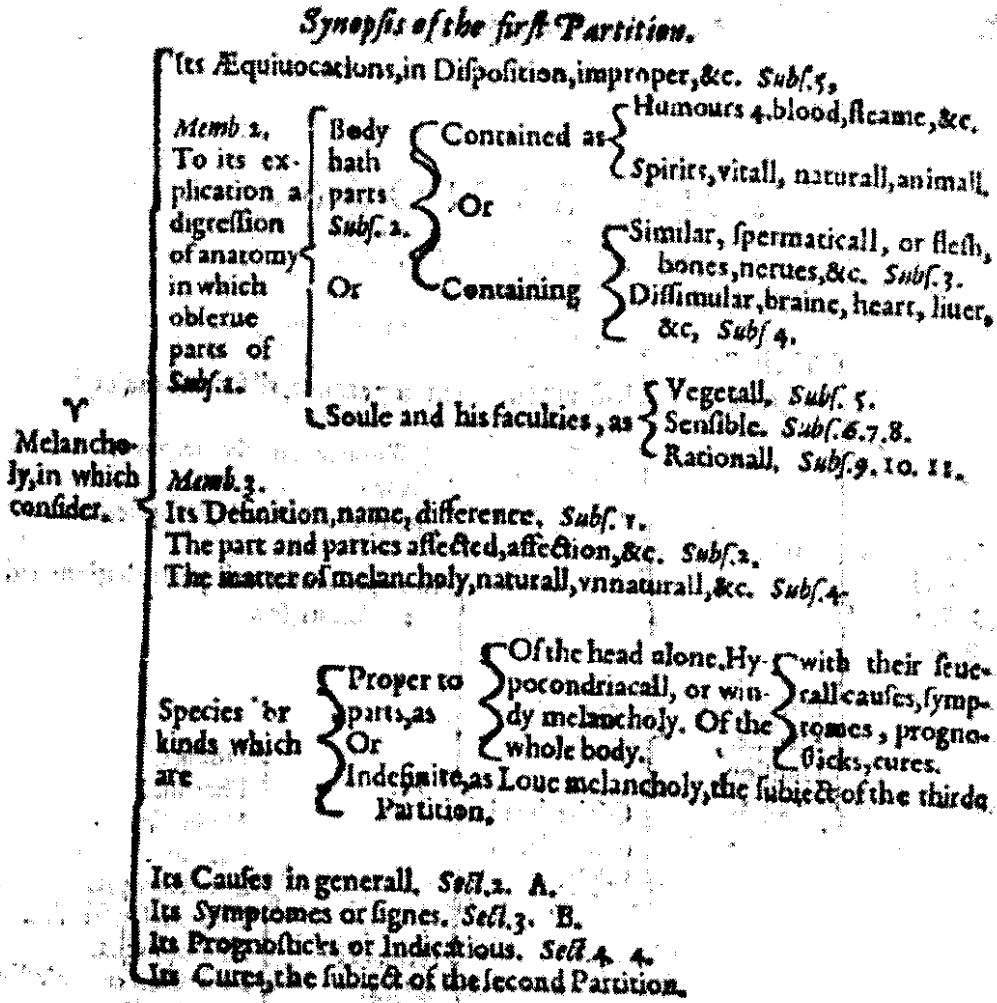 Synopſis of the firſt Partition.
Its Æquiuocations, in Diſpoſition, improper, &c. Subſ. 5,
Memb. 2.
To its ex-
plication a
digreſſion
of anatomy
in which
obſerue
parts of
Subſ. 1.
Body
hath
parts
Subſ. 2.
Or
Contained as
Humours 4. blood, fleame, &c.
Spirits, vitall, naturall, animall.
Or
Containing
Similar, ſpermaticall, or fleſh,
bones, nerues, &c. Subſ. 3.
Diſſimular, braine, heart, liuer,
&c, Subſ 4.
Soule and his faculties, as
Vegetall. Subſ. 5.
Senſible. Subſ. 6. 7. 8.
Rationall, Subſ. 9. 10. 11.
♈
Melancho-
ly, in which
conſider.
Memb. 3.
Its Definition, name, difference. Subſ. 1.
The part and parties affected, affection, &c. Subſ. 2.
The matter of melancholy, naturall, vnnaturall, &c. Subſ. 4.
Species or
kinds which
are
Proper to
parts, as
Or
Indefinite, as Loue melancholy, the ſubiect of the thirde
Partition.
Of the head alone. Hy-
pocondriacall, or win-
dy melancholy. Of the
whole body.
with their ſeue-
rall cauſes, ſymp-
tomes, progno-
ſticks, cures.
Its Cauſes in generall. Sect. 2. A.
Its Symptomes or ſignes. Sect. 3. B.
Its Prognoſticks or Indicatious. Sect. 4. 4.
Its Cures, the ſubiect of the ſecond Partition.